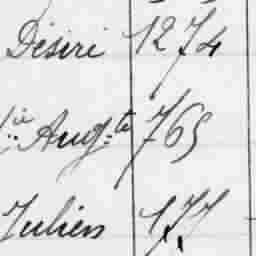 Désiré 1274
ie Augte 765
Julien 177